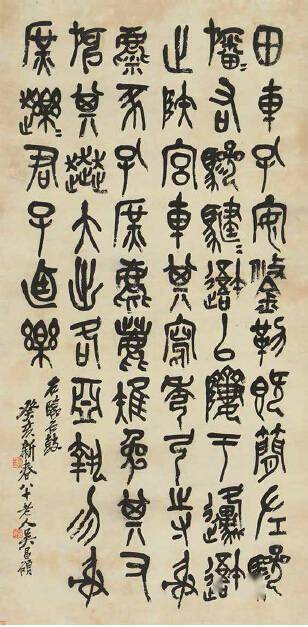 田車孔安鋚勒既簡左驂
旛〻右驂騝〻避以隮于邍避
止陝宮車其寫秀弓寺射
麋豕孔庶麀鹿雉兔其又
其趩大出各亞執勿射
庶趯〻君子迺樂
臨石鼓
癸亥新春八十老人吳昌碩